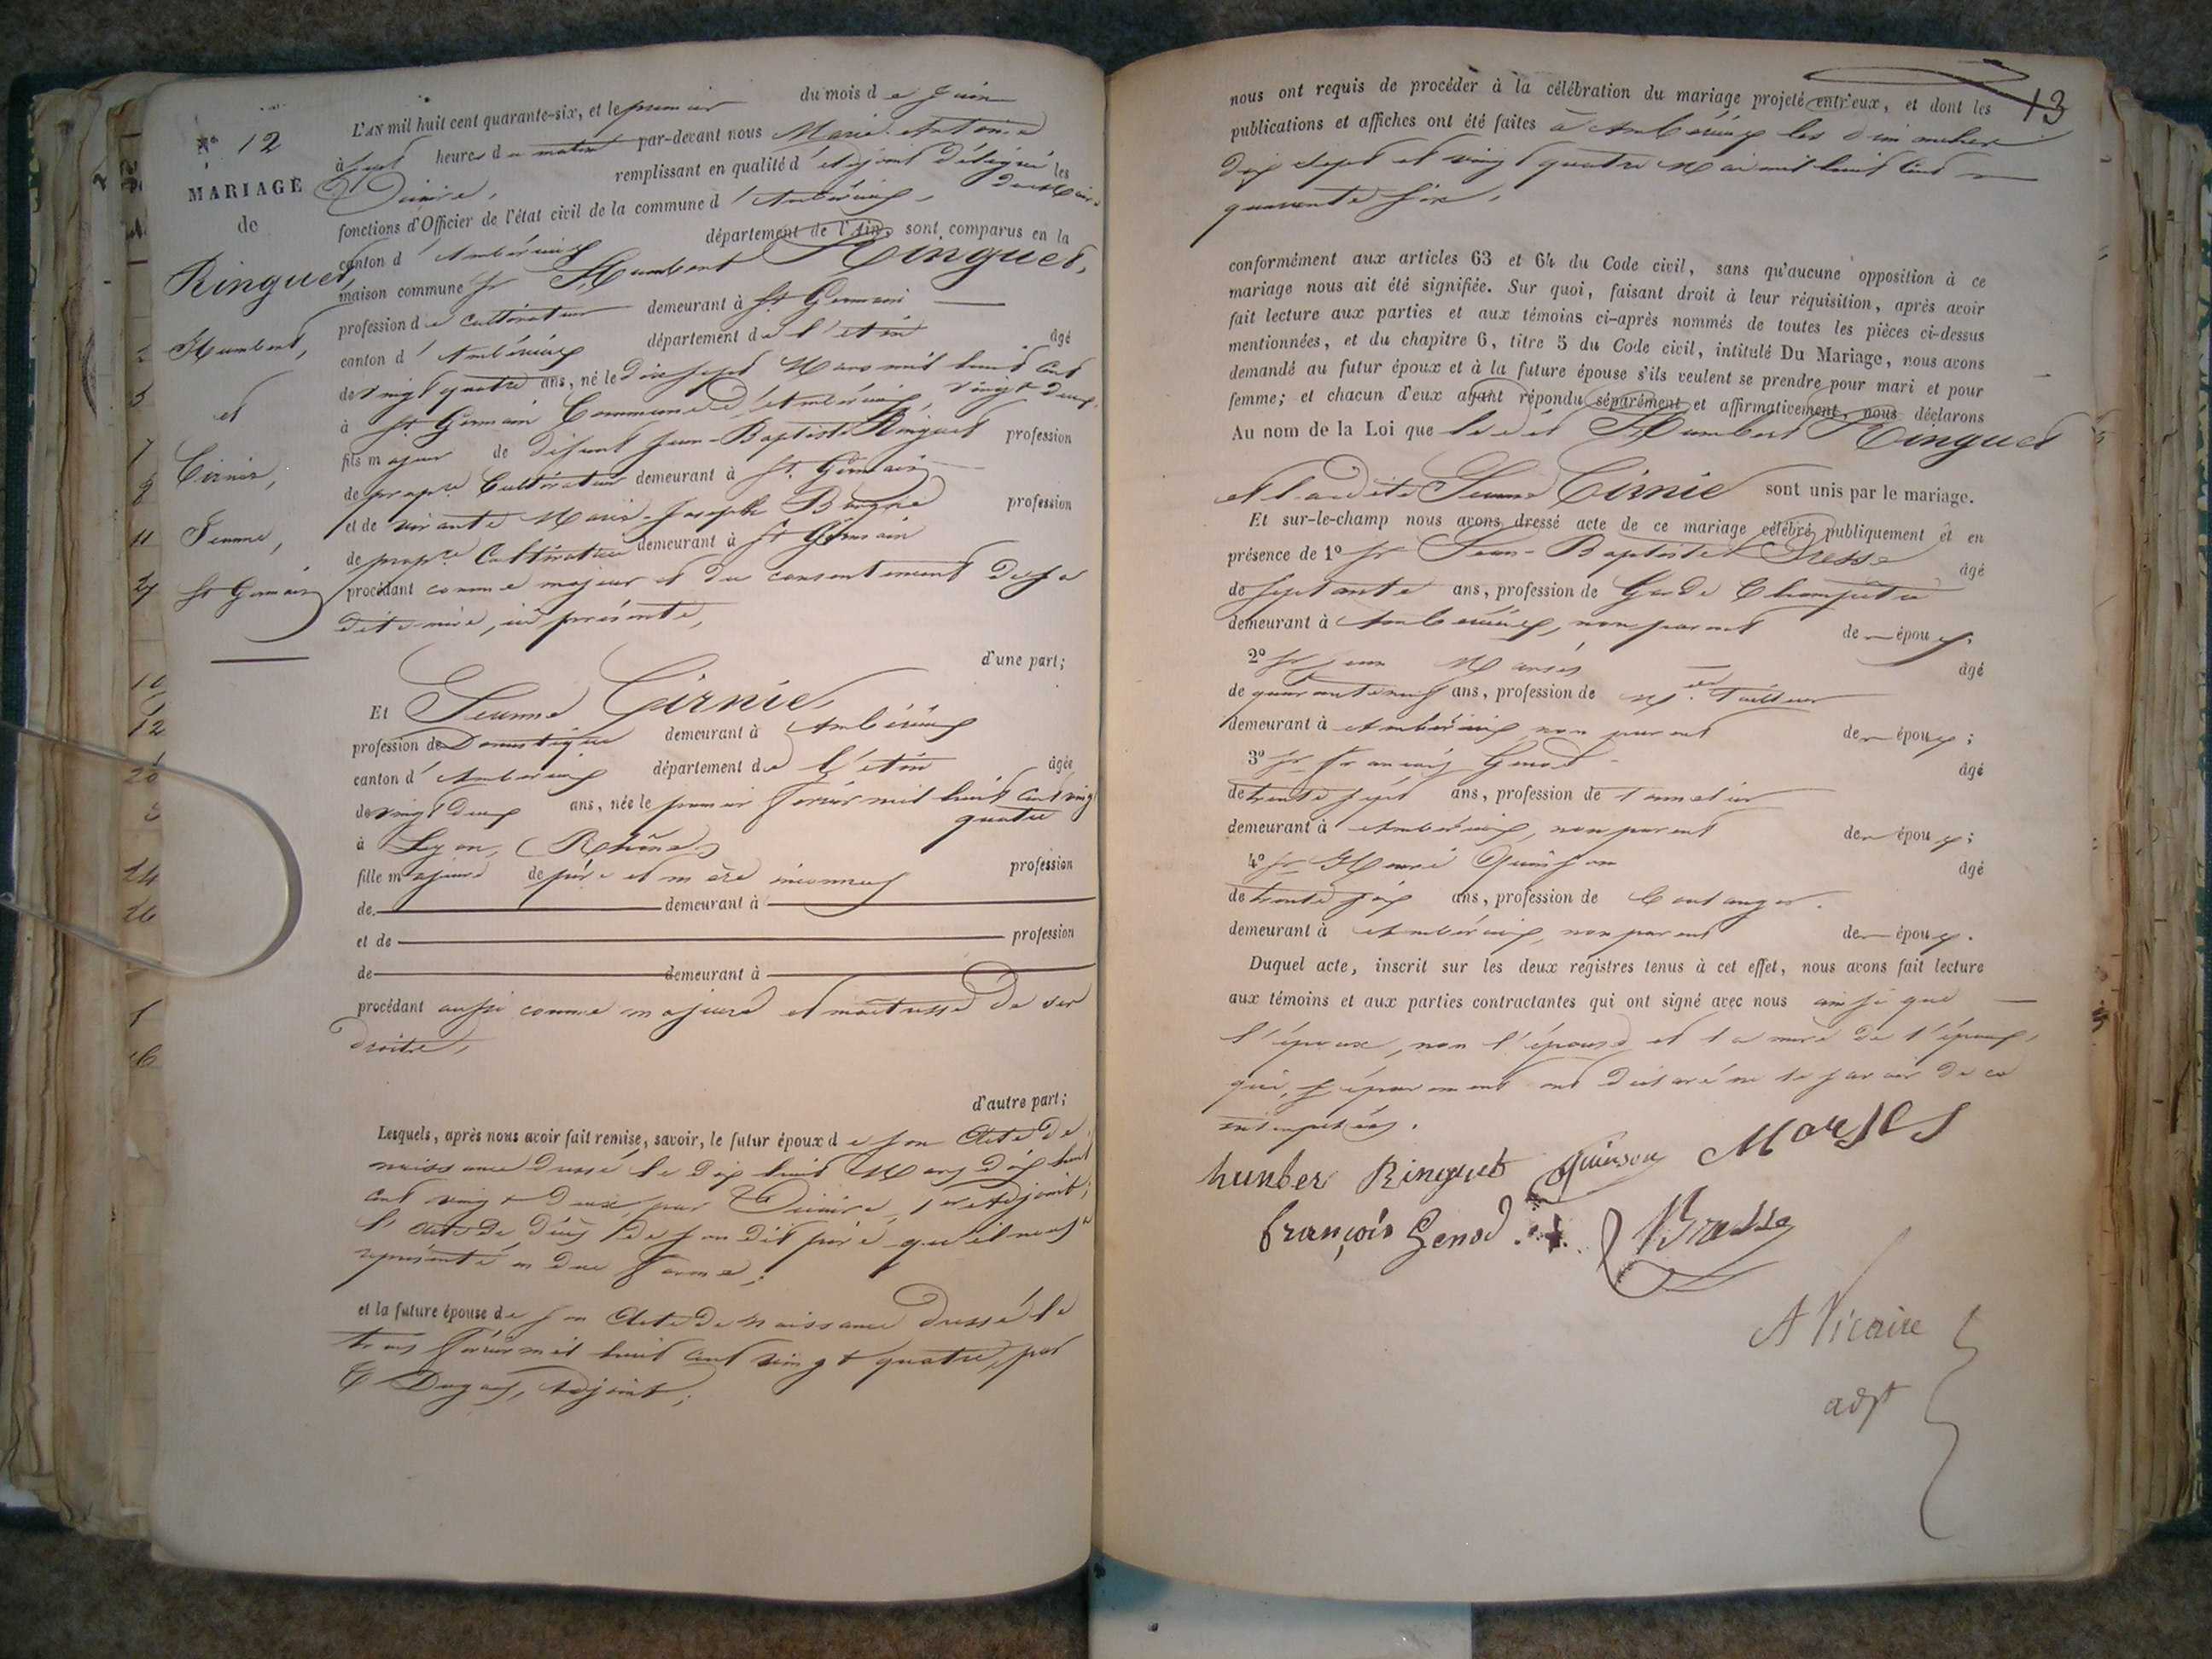 N° 12
MARIAGE
de
Ringuet,
Humbert,
et
Cirnie,
Jeanne,
St Germain
L'AN mil huit cent quarante-six, et le premier du mois de Juin
à sept heures du matin par-devant nous Marie-Antoine
Vicaire, remplissant en qualité d'Adjoint délégué les
du Maire
fonctions d'Officier de l'état civil de la commune d'Ambérieux,
canton d'Ambérieux département de l'Ain, sont comparus en la
maison commune Sr Humbert Ringuet,
profession de cultivateur demeurant à St Germain
canton d'Ambérieux département de l'Ain âgé
de vingt quatre ans, né le dix sept Mars mil huit cent
vingt deux,
à St Germain Commune d'Ambérieux,
fils majeur de défunt Jean-Baptiste Ringuet profession
de propre Cultivateur demeurant à St Germain
et de vivante Marie-Josephte profession
de propre Cultivatrice demeurant à St Germain
procédant comme majeur et du consentement de sa
dite mère, ici présente,
d'une part;
Et Jeanne Cirnie,
profession de Domestique demeurant à Ambérieux
canton d'Ambérieux département de l'Ain âgée
de vingt deux ans, née le premier Février mil huit cent vingt
quatre
à Lyon, (Rhône)
fille majeure de père et mère inconnus profession
de demeurant à
et de profession
de demeurant à
procédant aussi comme majeure et maitresse de ses
droits,
d'autre part;
Lesquels, après nous avoir fait remise, savoir, le futur époux de son Acte de
naissance dressé le dix huit Mars dix huit
cent vingt deux par Vicaire, 1er Adjoint;
l'acte de décès de son dit père qu'il nous a
représenté en due forme;
et la future épouse de son Acte de naissance dressé le
trois Février mil huit cent vingt quatre, par
Dugas, Adjoint;
13
nous ont requis de procéder à la célébration du mariage projeté entr'eux, et dont les
publications et affiches ont été faites à Ambérieux les dimanches
dix sept et vingt quatre Mai mil huit cent
quarante six,
conformément aux articles 63 et 64 du Code civil, sans qu'aucune opposition à ce
mariage nous ait été signifiée. Sur quoi, faisant droit à leur réquisition, après avoir
fait lecture aux parties et aux témoins ci-après nommés de toutes les pièces ci-dessus
mentionnées, et du chapitre 6, titre 5 du Code civil, intitulé Du Mariage, nous avons
demandé au futur époux et à la future épouse s'ils veulent se prendre pour mari et pour
femme; et chacun d'eux ayant répondu séparément et affirmativement, nous déclarons
Au nom de la Loi que le dit Humbert Ringuet
et la dite Jeanne Cirnie sont unis par le mariage.
Et sur-le-champ nous avons dressé acte de ce mariage célébré publiquement et en
présence de 1° Sr Jean-Baptiste Bresse âgé
de septante ans, profession de Garde Champêtre
demeurant à Ambérieux, non parent de époux,
2° Sr Jean âgé
de quarante neuf ans, profession de Md Tailleur
demeurant à Ambérieux non parent de époux;
3° Sr François Genod âgé
de trente sept ans, profession de tonnelier
demeurant à Ambérieux, non parent de époux;
4° Sr Henri Quinson âgé
de trente six ans, profession de boulanger.
demeurant à Ambérieux, non parent de époux.
Duquel acte, inscrit sur les deux registres tenus à cet effet, nous avons fait lecture
aux témoins et aux parties contractantes qui ont signé avec nous ainsi que
l'époux, non l'épouse et la mère de l'époux,
qui, séparément ont déclaré ne le savoir de ce
interpellées.
humber Ringuet Quinson Marses
françois Genod Bresse
A Vicaire
adjt